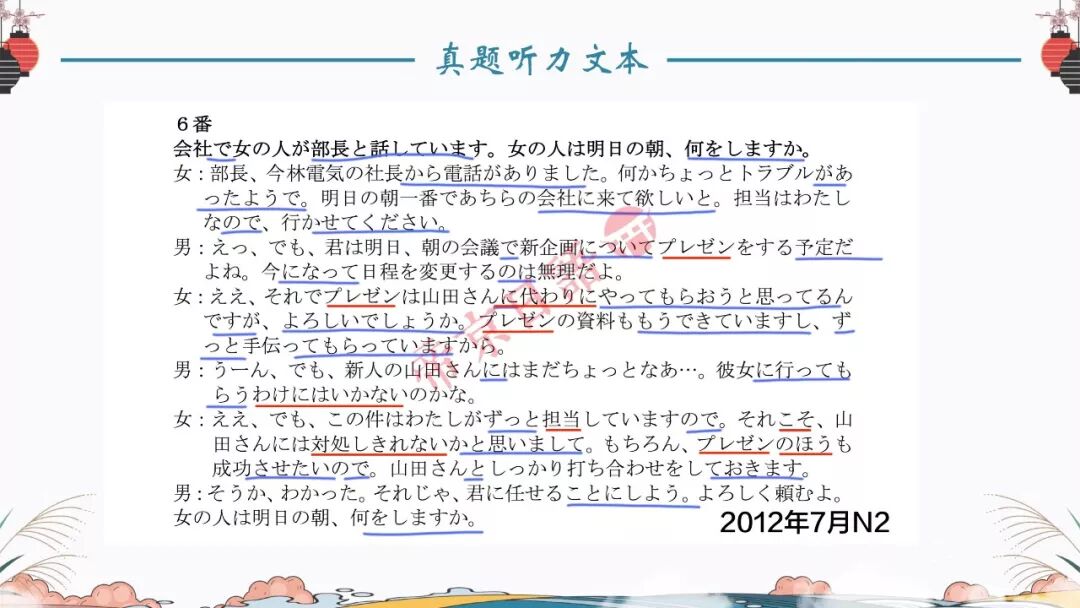 真题听力文本
6番
会社で女の人が部長と話しています。女の人は明日の朝、何をしますか。
女：部長、今林電気の社長から電話がありました。何かちょっとトラブルがあ
ったようで。明日の朝一番であちらの会社に来て欲しいと。担当はわたし
なので、行かせてください。
男：えっ、でも、君は明日、朝の会議で新企画についてプレゼンをする予定だ
よね。今になって日程を変更するのは無理だよ。
女：ええ、それでプレゼンは山田さんに代わりにやってもらおうと思ってるん
ですが、よろしいでしょうか。プレゼンの資料ももうできていますし、ず
っと手伝ってもらっていますから。
男：うーん、でも、新人の山田さんにはまだちょっとなあ…。彼女に行っても
らうわけにはいかないのかな。
女：ええ、でも、この件はわたしがずっと担当していますので。それこそ、山
田さんには対処しきれないかと思いまして。もちろん、プレゼンのほうも
成功させたいので。山田さんとしっかり打ち合わせをしておきます。
男：そうか、わかった。それじゃ、君に任せることにしよう。よろしく頼むよ。
女の人は明日の朝、何をしますか。
2012年7月N2
帝京日語